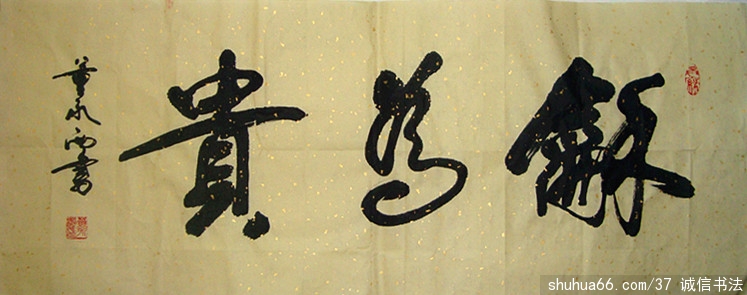 龢為貴
董永西書
shuhua66.com/37 诚信书法